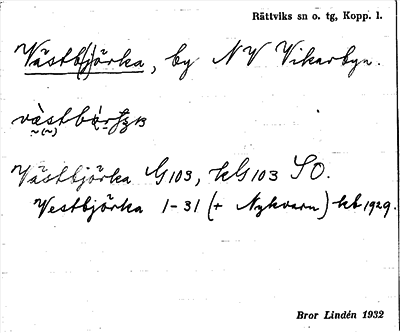 Rättviks sn o. tg, Kopp. l.
Västb(j)örka, by NV Vikarbyn.
Västbjörka G103, hG103 SO.
Westbjörka 1-31 (+ Nykvarn) hb 1929.
Bror Lindén 1932